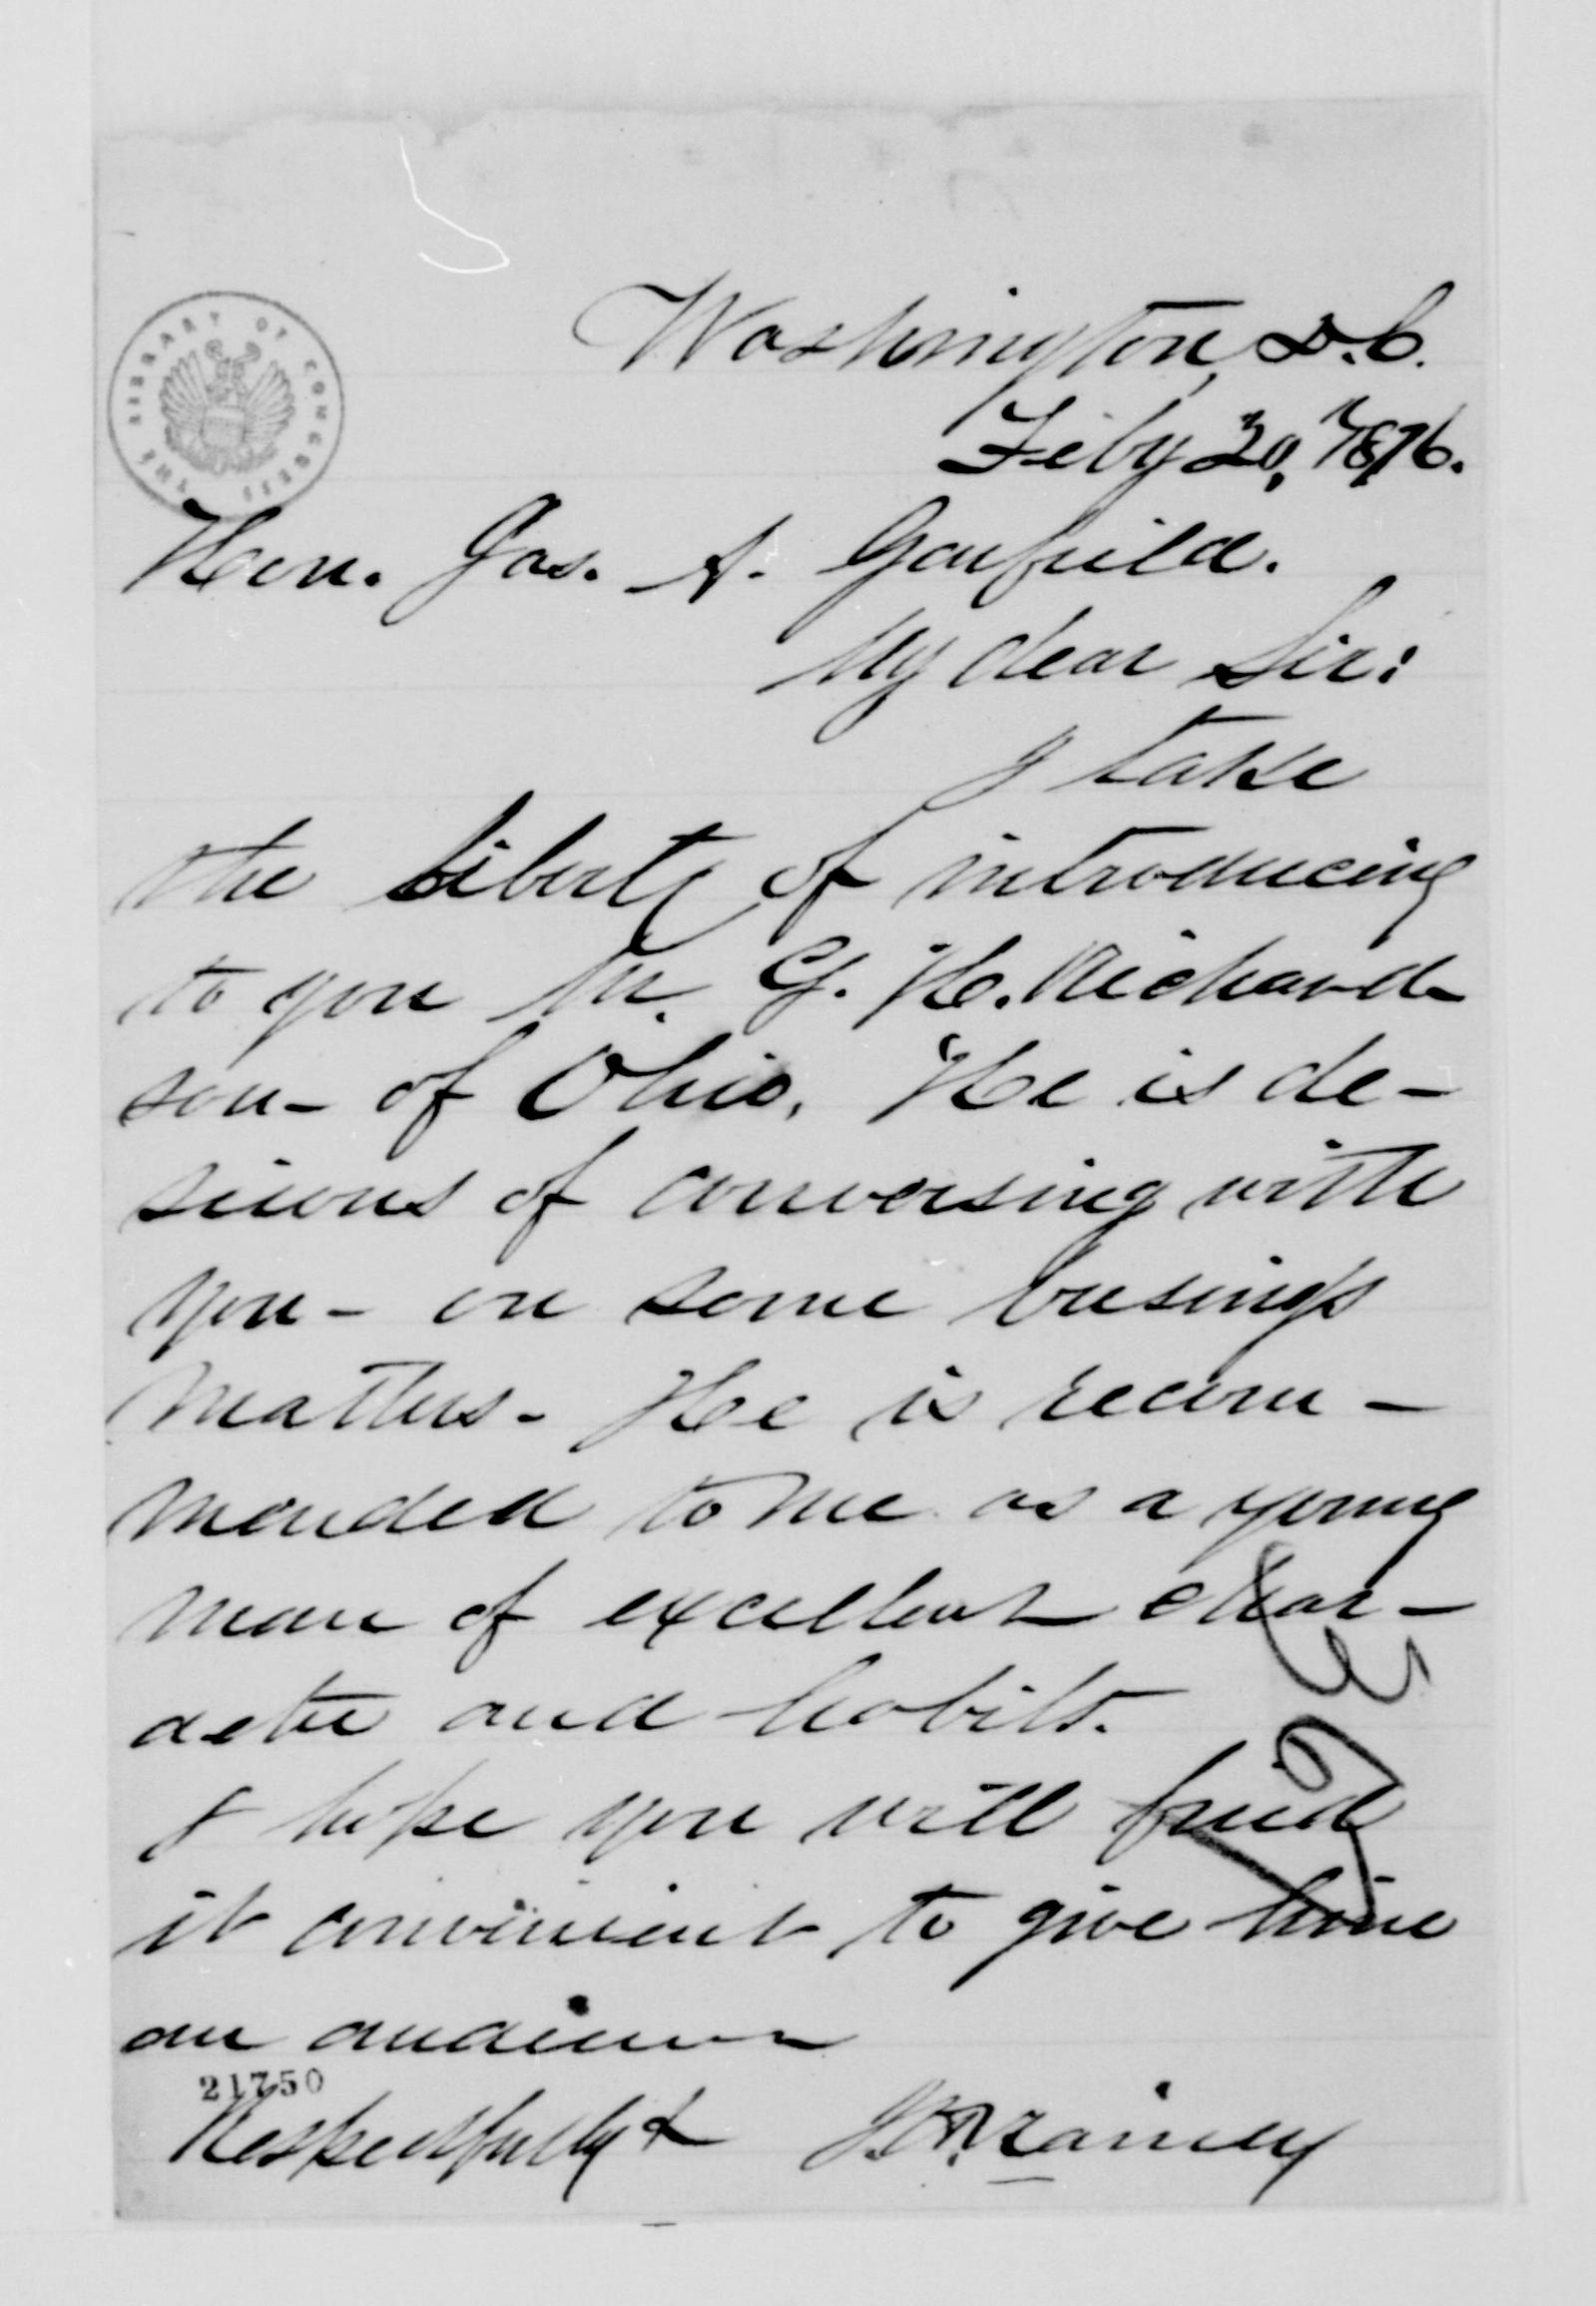 Washington, D.C.
Feby 20, 1876.
THE LIBRARY OF CONGRESS
Hon. Jas. A. Garfield.
My dear Sir:
I take
the liberty of introducing
to you Mr. G. H. Richard
son - of Ohio. He is de-
sirous of conversing with
you - on some business
matters - He is recom-
mended to me as a young
man of excellent char-
acter and habits.
I hope you will find
it convenient to give him
an audience
21750
Respectfully &
J H Rainey